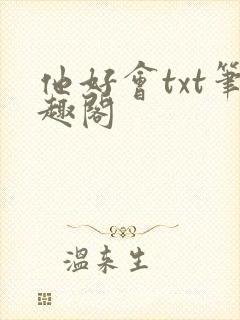 他好會txt筆
趣閣
溫来生